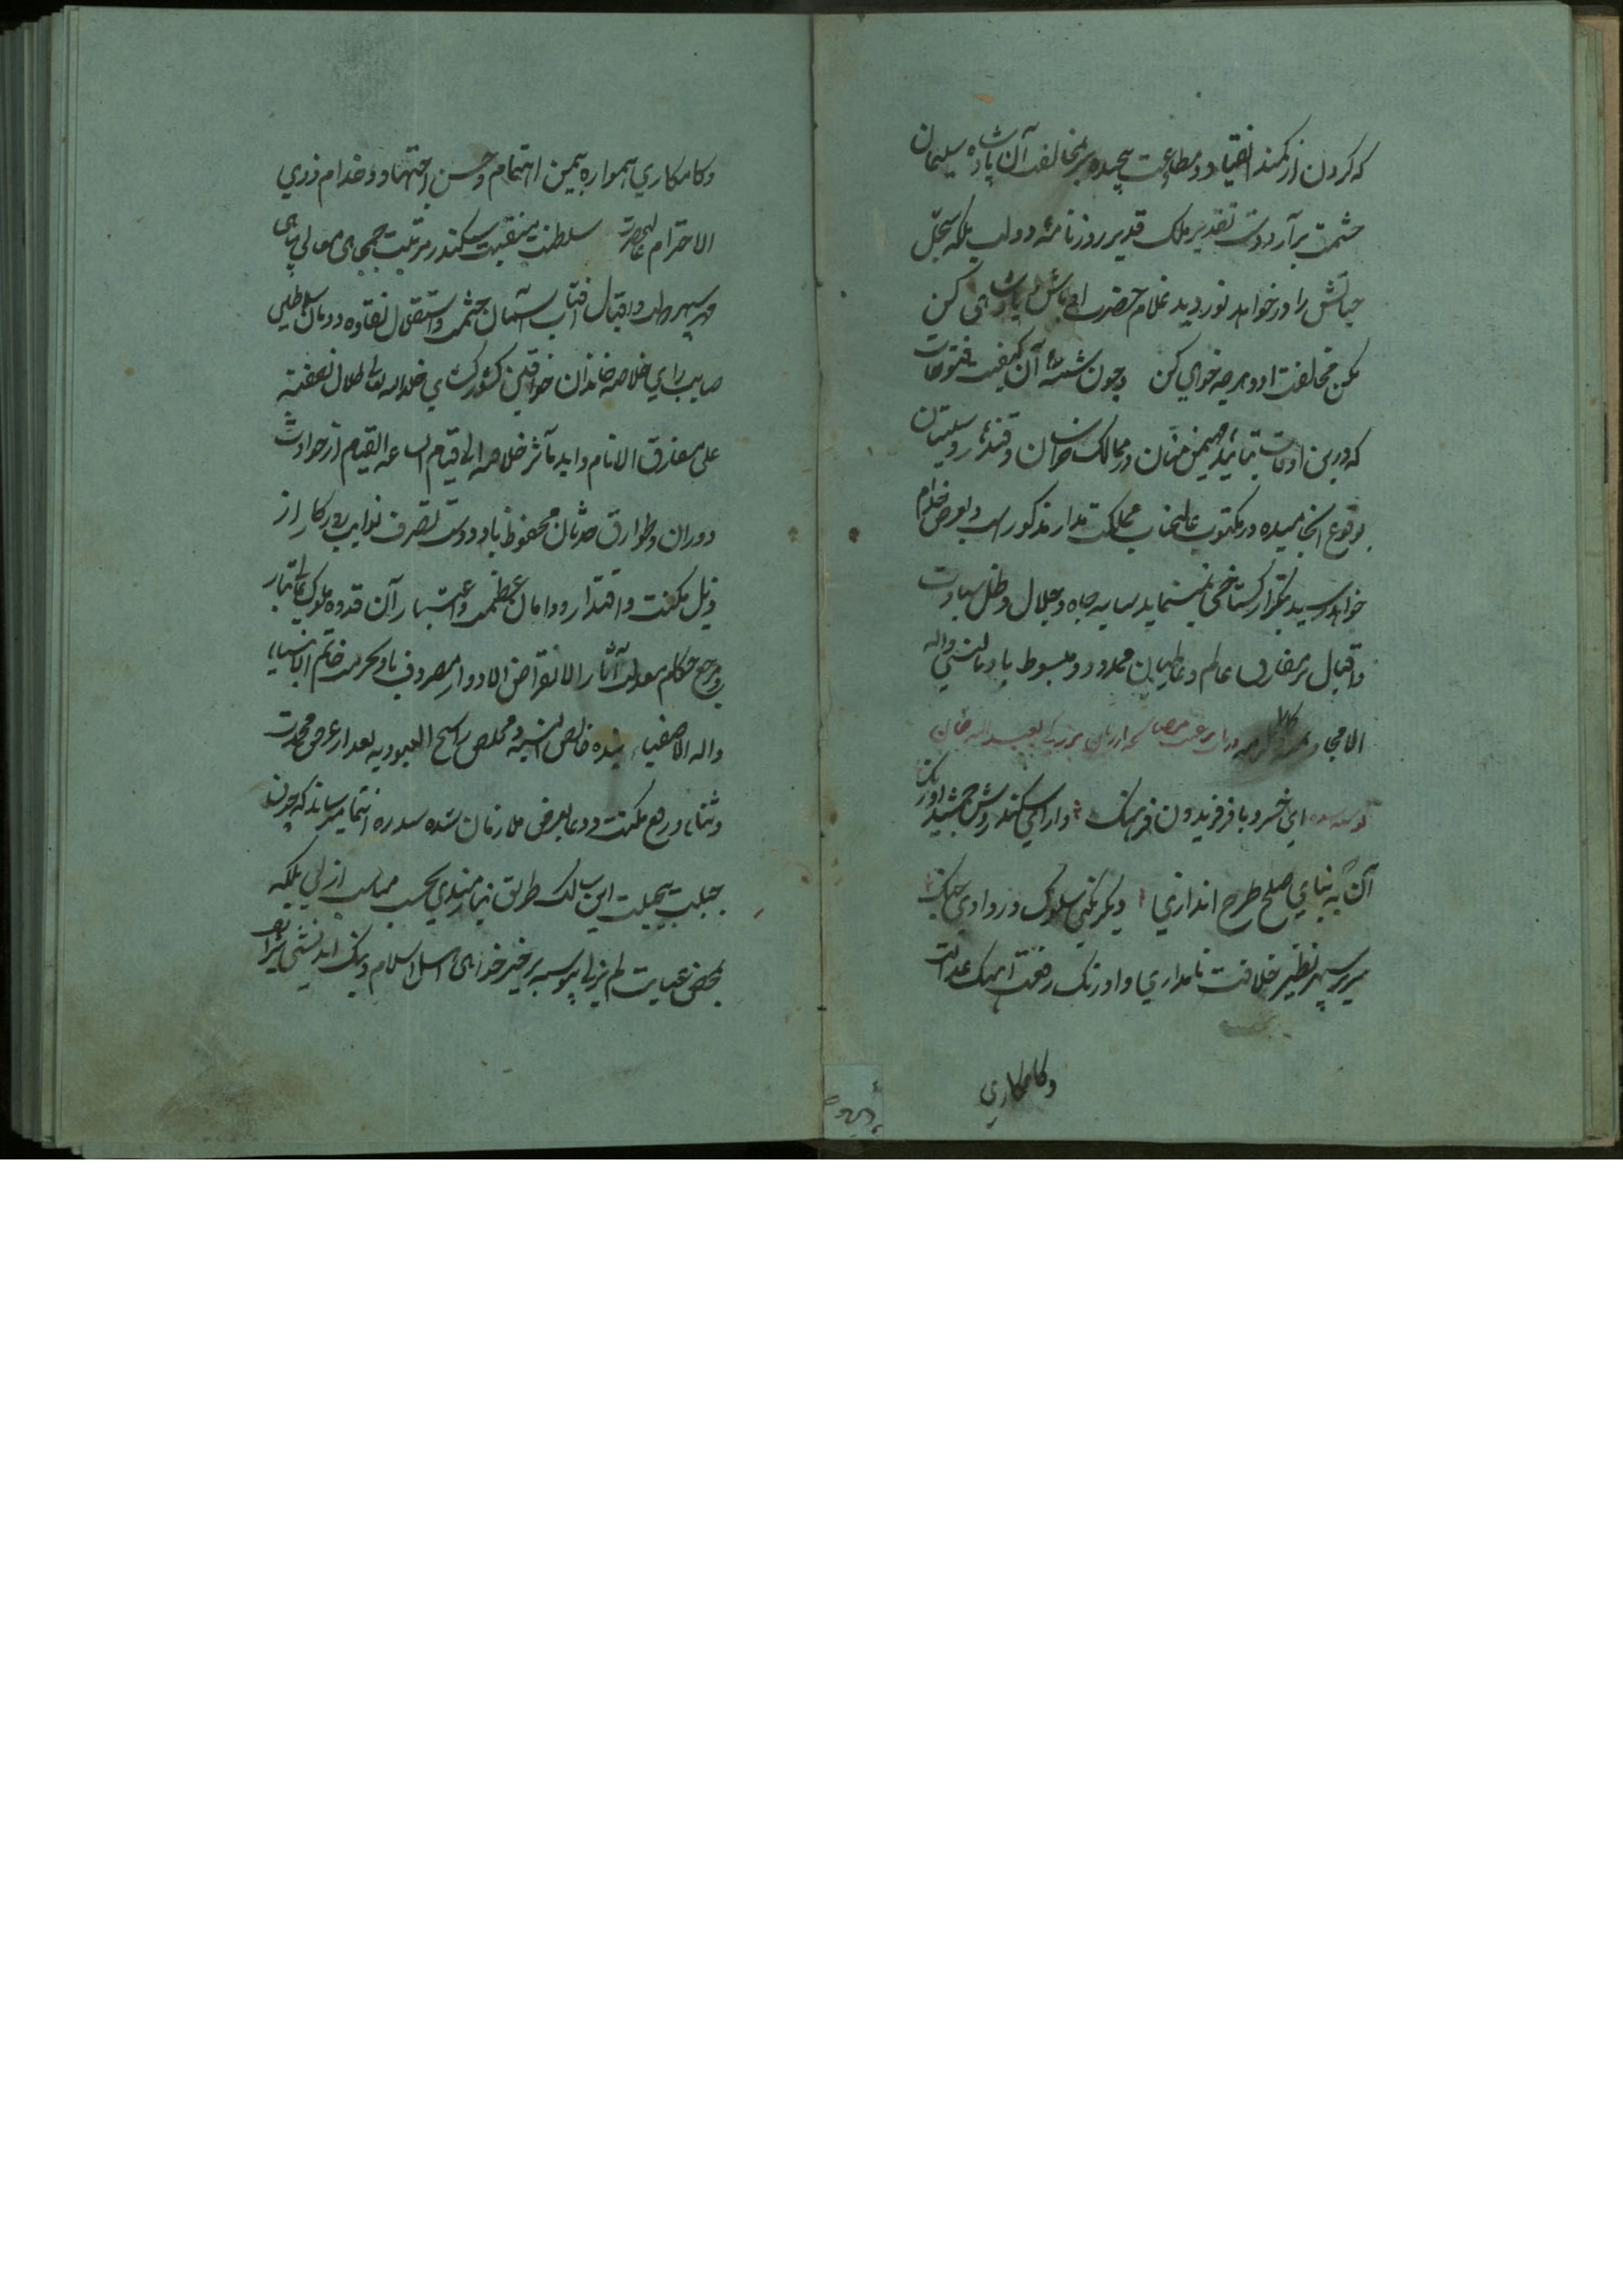 که گردن از کمند انقیاد و مطاوعت پیچیده سر مخالفت آن پادشاه سلیمان
حشمت برآرد دست تقدیر ملک قدیر روزنامهٔ دولت بلکه سجل
حیاتش را در خواهد نوردید غلام حضرت او باش و پادشاهی کن
مکن مخالفت او و هرچه خواهی کن و چون شمهٔ آن کیفیت فتوحات
که درین اوقات بتائید مهیمن منان در ممالک خراسان و قندهار و سیستان
بوقوع انجامیده در مکتوب عالیجناب مملکت مدار مذکور است و بعرض خدام
خواهد رسید بتکرار گستاخی نمینماید سایه جاه و جلال و ظل سعادت
و اقبال بر مفارق عالم و عالمیان ممدود و مبسوط باد بالنبی واله
الامجاد
ای خسرو با فر فریدون فرهنگ دارای سکندر روش جمشید اورنگ
آن به که بنای صلح طرح اندازی دیگر نکنی سلوک در وادی جنگ
سریر سپهر نظیر خلافت نامداری و اورنگ رفعت آهنگ عدالت
وکامکاری
وکامکاری همواره بیمن اهتمام و حسن اجتهاد و خدام ذوی
الاحترام اعلیحضرت سلطنت منقبت سکندر مرتبت جمجاهی معالی پناهی
مهر سپهر دولت و اقبال آفتاب آسمان حشمت و استقلال نقاوه دودمان سلاطین
صایب رای خلاصه خاندان خواقین کشورگشای خلد الله تعالی ظلال نصفته
علی مفارق الانام و اید مآثر خلافته الی قیام الساعه القیام از حوادث
دوران و طوارق حدثان محفوظ باد و دست تصرف نوایب روزگار از
ذیل مکنت و اقتدار و دامان عظمت و اعتبار آن قدوه ملوک عالیتبار
و مرجع حکام معدلت آثار الا انقراض الادوار مصروف باد بحرمت خاتم الانبیاء
واله الاصفیاء بنده خالص النیه و مخلص راسخ العبودیه بعد از عرض محمدت
و ثناء و رفع مکنت و دعا بعرض ملازمان سده سدره انتما میرساند که چون
جبلت بیحیلت این سالک طریق نیازمندی بحسب مناسبت ازلی بلکه
بمحض عنایت لم یزلی پیوسته بر خیر خواهی اهل اسلام و نیک اندیشی